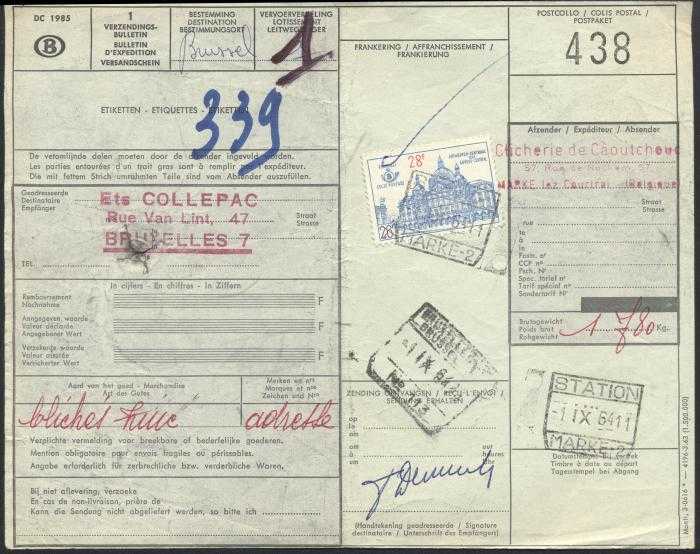 DC 1985
B
1
VERZENDINGS-
BULLETIN
BULLETIN
D'EXPEDITION
VERSANDSCHEIN
BESTEMMING
DESTINATION
BESTIMMUNGSORT
Brussel
VERVOERVERDELING
LOTISSEMENT
LEITWEGZEIGER
1
ETIKETTEN - ETIQUETTES - ETIKETTEN
339
FRANKERING / AFFRANCHISSEMENT /
FRANKIERUNG
POSTCOLLO / COLIS POSTAL /
POSTPAKET
438
De vetomlijnde delen moeten door de afzender ingevuld worden.
Les parties entourées d'un trait gras sont à remplir par l'expéditeur.
Die mit fettem Strich umrahmten Teile sind vom Absender auszufüllen.
Geadresseerde
Destinataire
Empfänger
Ets COLLEPAC
Rue Van Lint, 47
BRUXELLES 7
Straat
Strasse
TEL.
28F
26F
MARKE-2
Afzender / Expéditeur / Absender
Clicherie de Caoutchouc
57, Rue de
MARKE lez Courtrai (Belgique)
Straat
Strasse
rue
te
à
in
Postr. n°
CCP n°
Psch. Nr
Spec. tarief n°
Tarif spécial n°
Sondertarif N°
In cijfers - En chiffres - In Ziffern
Remboursement
Nachnahme
F
Aangegeven waarde
Valeur déclarée
Angegebener Wert
F
Verzekerde waarde
Valeur assurée
Versicherter Wert
F
Brutogewicht
Poids brut
Rohgewicht
1 780 Kg.
BRUXELLES
BRUSSEL
-1 IX 64
Aard van het goed - Marchandise
Art des Gutes
Merken en nrs
Marques et nos
Zeichen und Nr.
clichés
adresse
Verplichte vermelding voor breekbare of bederfelijke goederen.
Mention obligatoire pour envois fragiles ou périssables.
Angabe erforderlich für zerbrechliche bzw. verderbliche Waren.
Bij niet aflevering, verzoeke
En cas de non-livraison, prière de
Kann die Sendung nicht abgeliefert werden, so bitte ich
ZENDING ONTVANGEN / REÇU L'ENVOI /
SENDUNG ERHALTEN
op
le
am
te
à
um
uur
heures
Uhr
(Handtekening geadresseerde / Signature
destinataire / Unterschrift des Empfängers)
STATION
-1 IX 6411
MARKE-2
Datumstempel bij vertrek
Timbre à date au départ
Tagesstempel bei Abgang
Monti, 3-0616 * — 4196-3-63 (1.500.000)